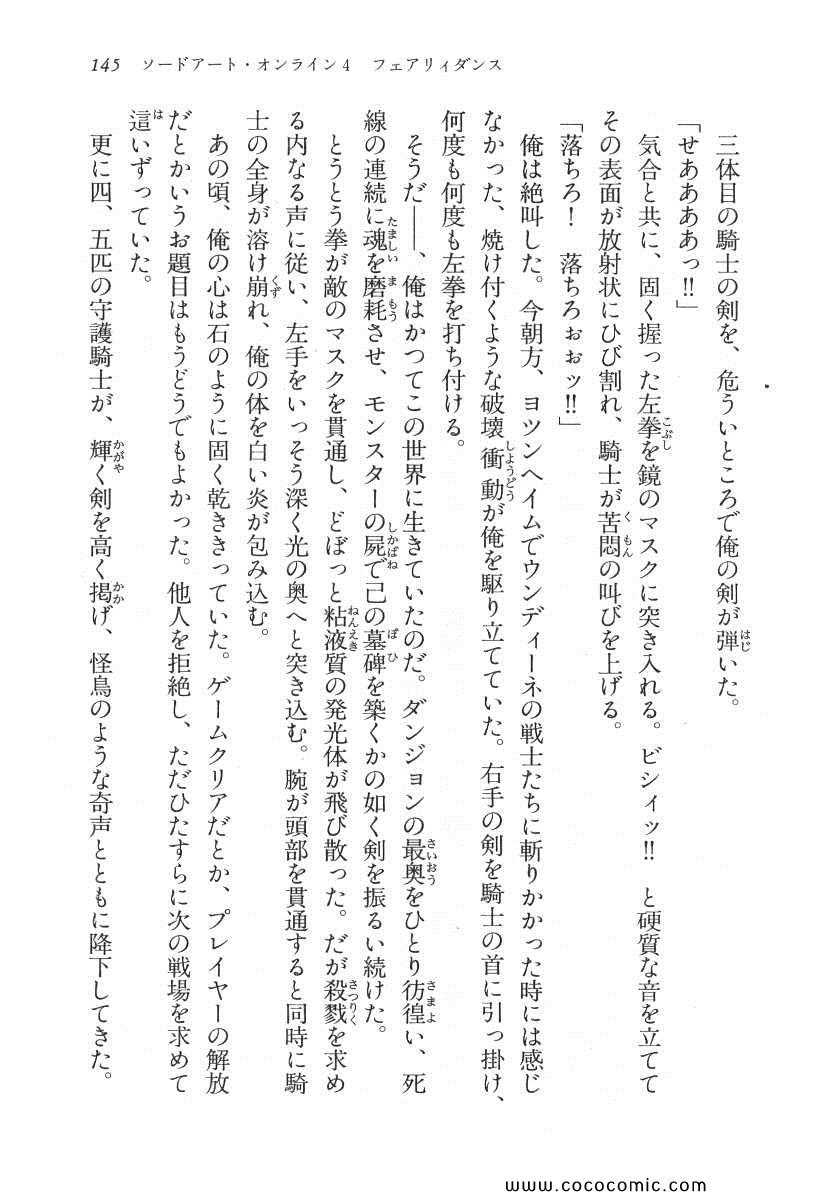 145　ソードアート・オンライン4　フェアリィダンス
三体目の騎士の剣を、危ういところで俺の剣が弾いた。
「せああああっ!!」
気合と共に、固く握った左拳を鏡のマスクに突き入れる。ビシィッ!!　と硬質な音を立てて
その表面が放射状にひび割れ、騎士が苦悶の叫びを上げる。
「落ちろ！　落ちろぉぉッ!!」
俺は絶叫した。今朝方、ヨツンヘイムでウンディーネの戦士たちに斬りかかった時には感じ
なかった、焼け付くような破壊衝動が俺を駆り立てていた。右手の剣を騎士の首に引っ掛け、
何度も何度も左拳を打ち付ける。
そうだ――、俺はかつてこの世界に生きていたのだ。ダンジョンの最奥をひとり彷徨い、死
線の連続に魂を磨耗させ、モンスターの屍で己の墓碑を築くかの如く剣を振るい続けた。
とうとう拳が敵のマスクを貫通し、どぼっと粘液質の発光体が飛び散った。だが殺戮を求め
る内なる声に従い、左手をいっそう深く光の奥へと突き込む。腕が頭部を貫通すると同時に騎
士の全身が溶け崩れ、俺の体を白い炎が包み込む。
あの頃、俺の心は石のように固く乾ききっていた。ゲームクリアだとか、プレイヤーの解放
だとかいうお題目はもうどうでもよかった。他人を拒絶し、ただひたすらに次の戦場を求めて
這いずっていた。
更に四、五匹の守護騎士が、輝く剣を高く掲げ、怪鳥のような奇声とともに降下してきた。
www.cococomic.com